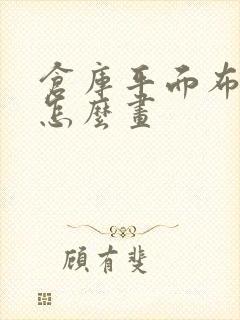 倉庫平面布
怎麼畫
顧有斐